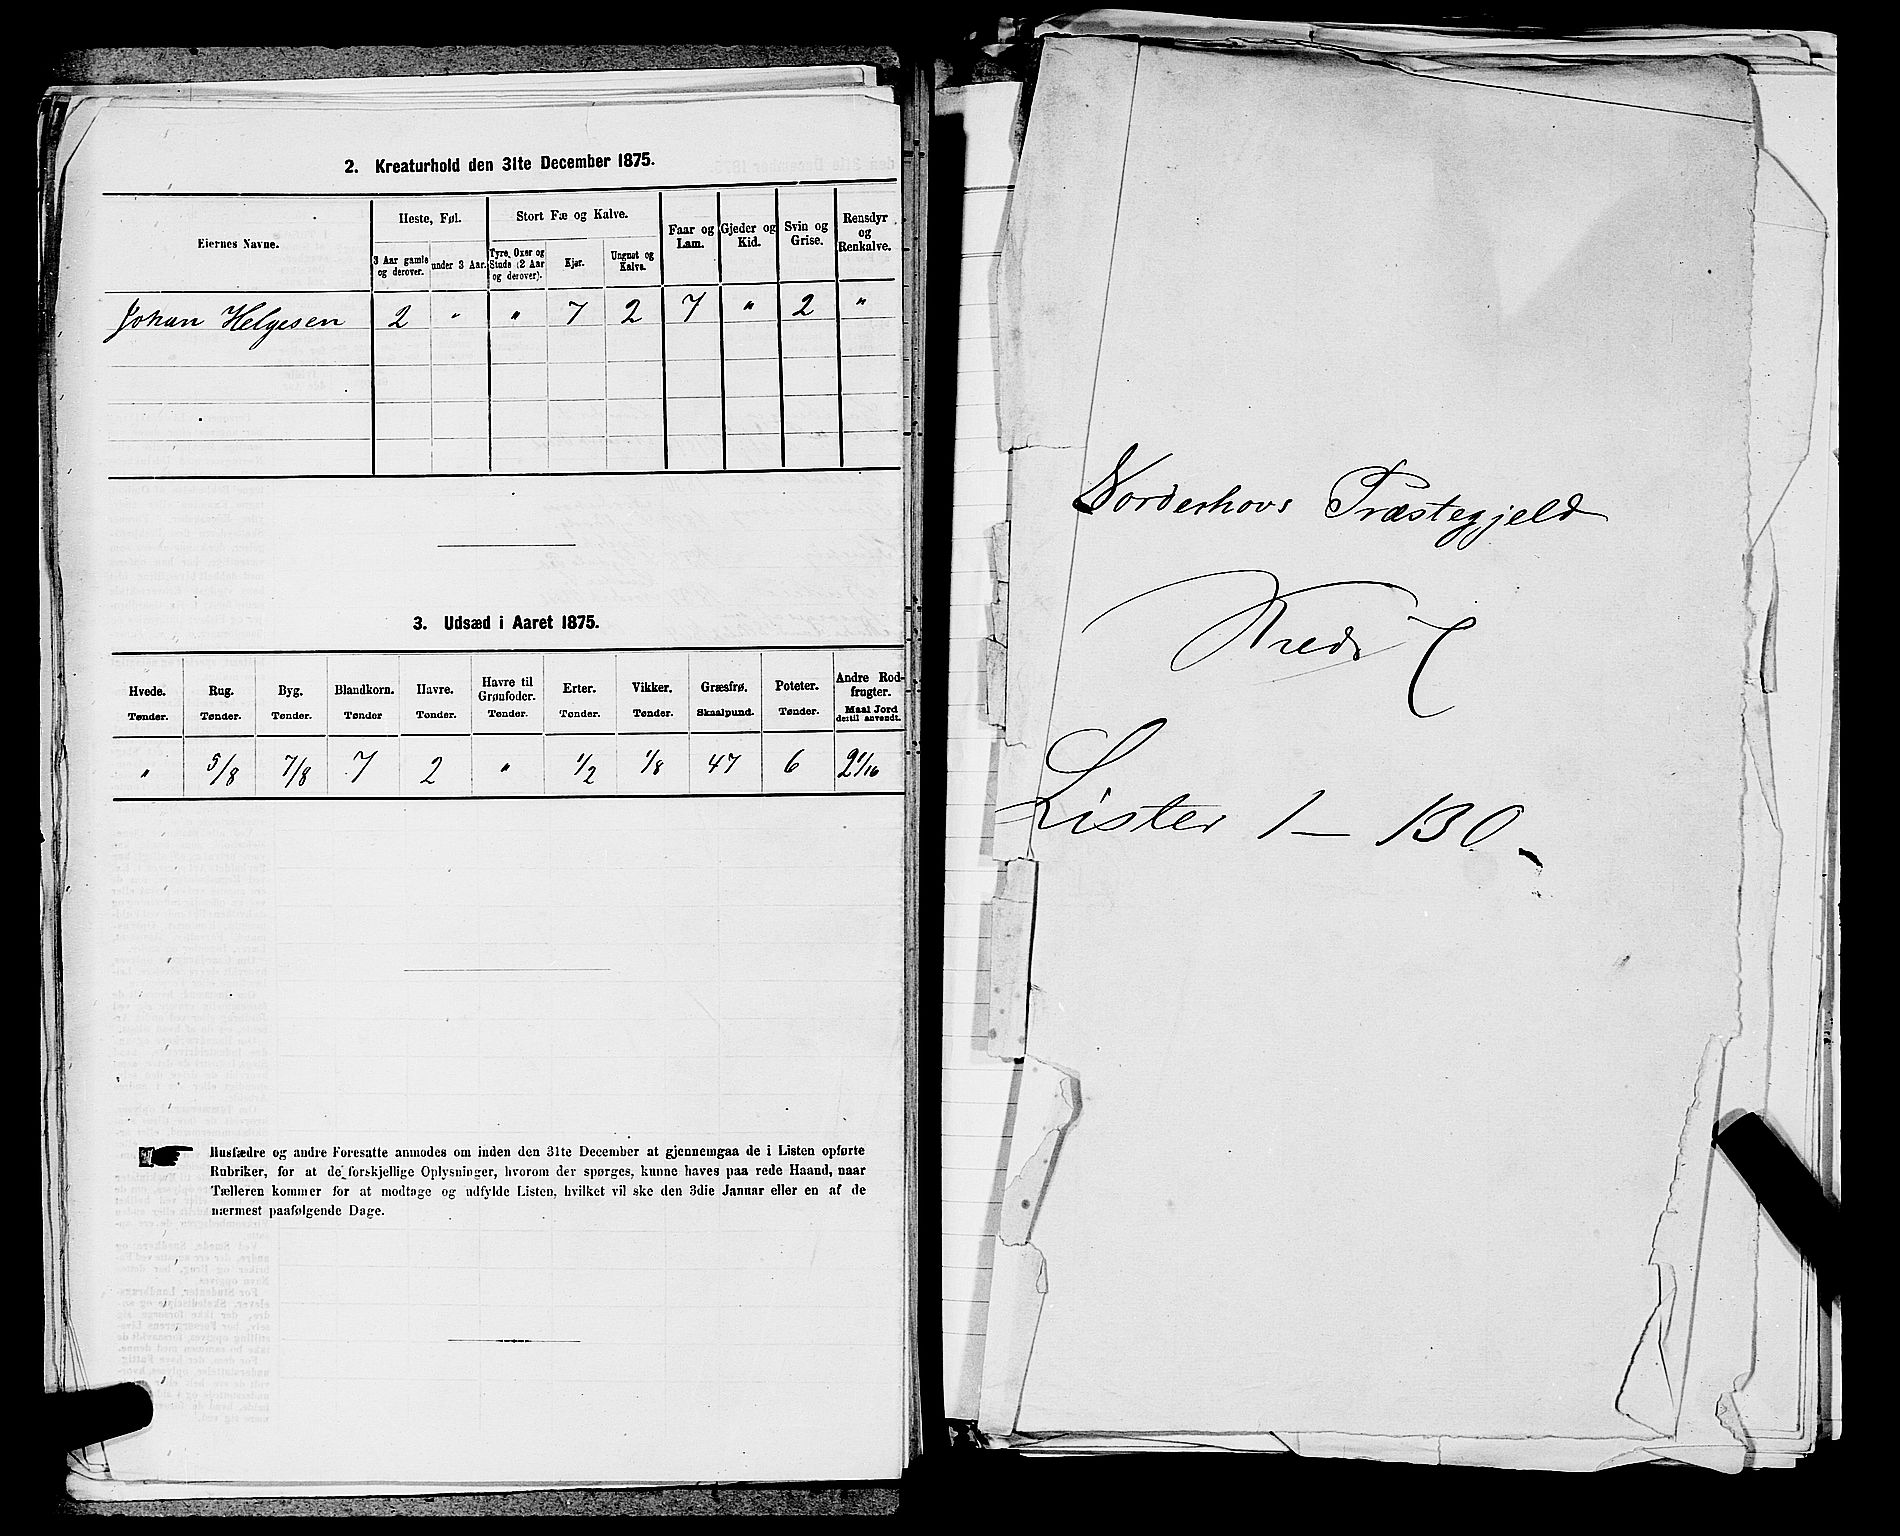 2. Kreaturhold den 31te December 1875.
Eiernes Navne.
Heste, Føl.
Stort Fæ og Kalve.
Faar og Lam.
Gjeder og Kid.
Svin og Grise.
Rensdyr og Renkalve.
3 Aar gamle og derover.
under 3 Aar.
Tyre, Oxer og Studs (2 Aar og derover).
Kjør.
Ungnøt og Kalve.
Johan Helgesen 2 " " 7 2 7 " 2 "
3. Udsæd i Aaret 1875.
Hvede. Rug. Byg. Blandkorn. Havre. Havre til Grønfoder. Erter. Vikker. Græsfrø. Poteter. Andre Rodfrugter.
Tønder. Tønder. Tønder. Tønder Tønder. Tønder. Tønder. Tønder. Skaalpund. Tønder. Maal Jord dertil anvendt.
" 5/8 7/8 7 2 " 1/2 1/8 47 6 2 1/16
Husfædre og andre Foresatte anmodes om inden den 31te December at gjennemgaa de i Listen opførte
Rubriker, for at de forskjellige Oplysninger, hvorom der spørges, kunne haves paa rede Haand, naar
Tælleren kommer for at modtage og udfylde Listen, hvilket vil ske den 3die Januar eller en af de
nærmest paafølgende Dage.
Norderhovs Præstegjeld
Kreds 7
Lister 1 – 130.